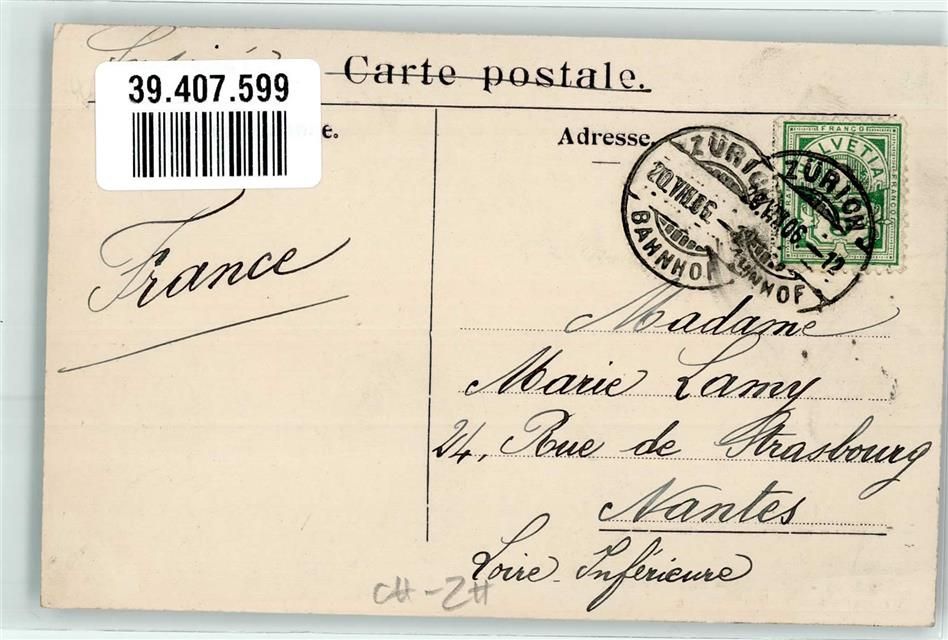 Carte postale.
39.407.599
e.
Adresse.
FRANCO
HELVETIA
FRANCO
ZÜRICH
20.VII.06.
BAHNHOF
ZÜRICH
20.VII.06.-12
BAHNHOF
France
Madame
Marie Lamy
24, Rue de Strasbourg
Nantes
Loire-Inférieure
CH-ZH